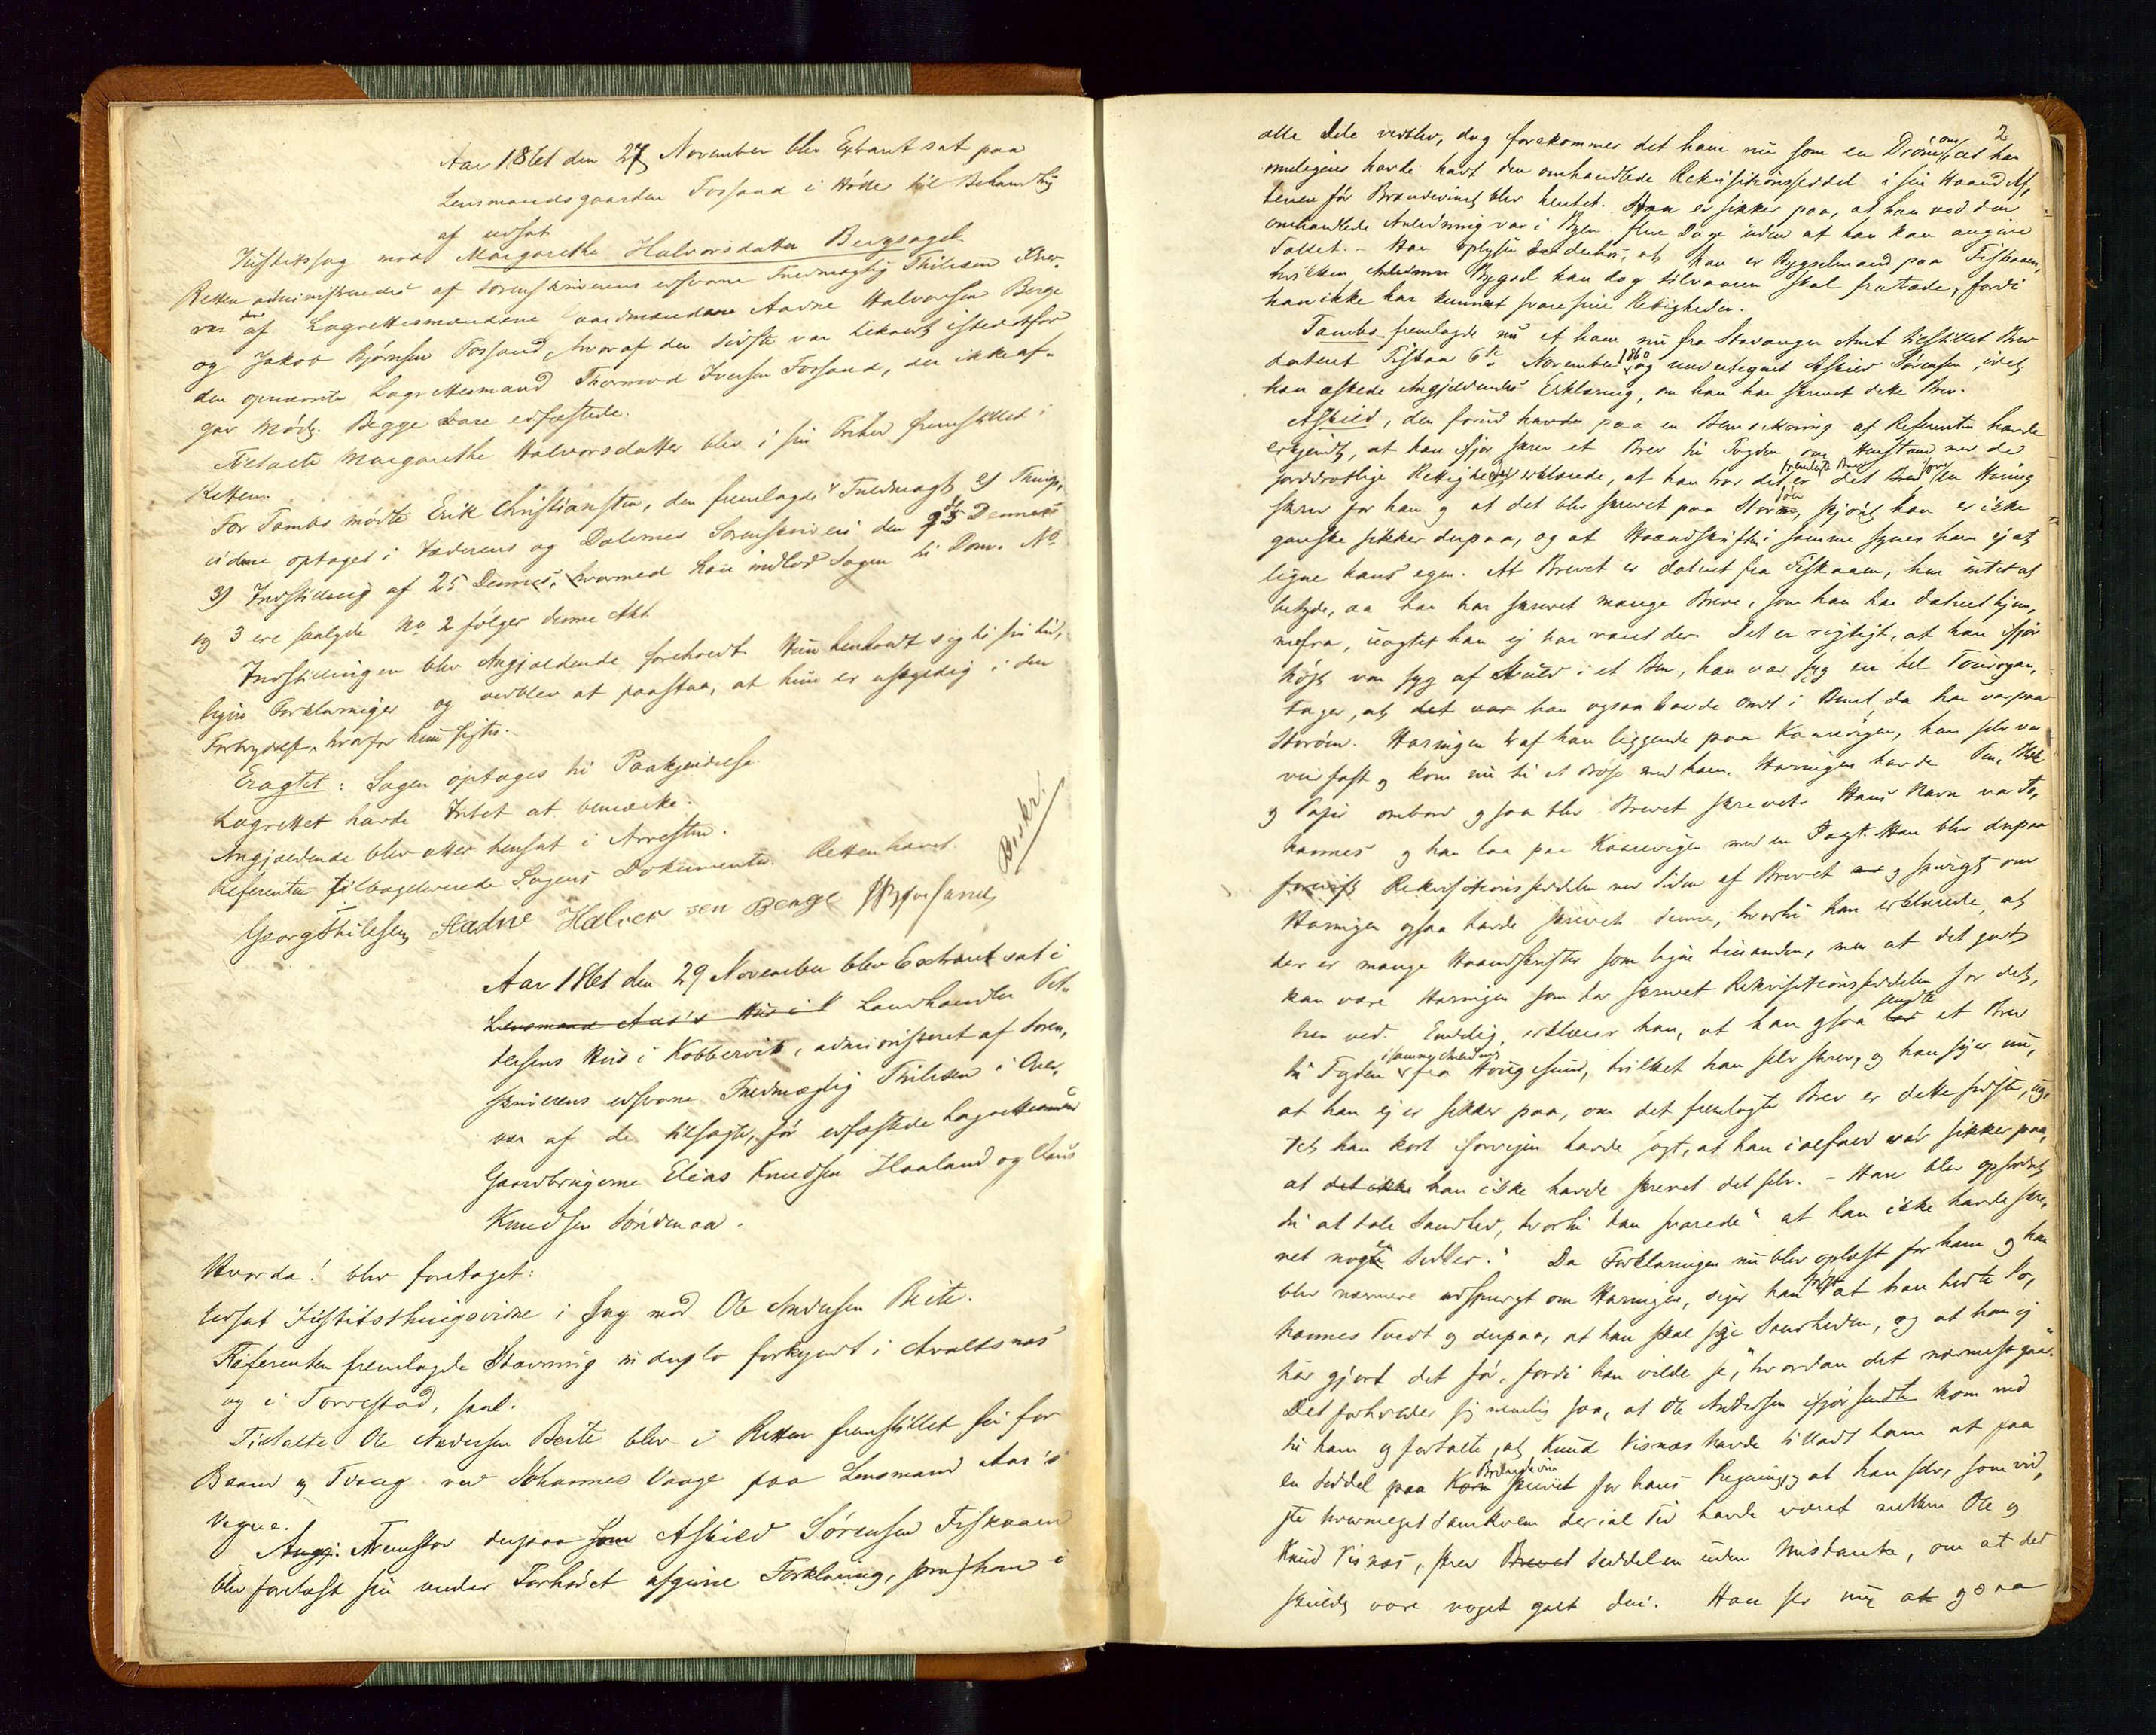 Aar 1861 den 27 November blev Extraret sat paa
Lensmandsgaarden Fossand i Høle til Behandling
af udsat
Justitssag mod Margarethe Halvorsdatter Bergsagel.
Retten administreredes af Sorenskriverens edsvorne Fuldmægtig Thilesen i Over-
vær af Lagrettesmændene Aadne Halvorsen Berge
og Jakob Bjørnsen Fossand, hvoraf den sidste var tilkaldt istedetfor
den opnævnte Lagrettesmand Thormod Iversen Fossand, der ikke af-
gav Møde. Begge vare edfæstede.
Tiltalte Margarethe Halvorsdatter blev i sin Frihed fremstillet i
Retten.
For Tambs mødte Erik Christiansen, der fremlagde 1) Fuldmagt 2) Things-
vidne optaget i Jæderens og Dalernes Sorenskriveri den 25 Dennes
3) Indstilling af 25 Dennes, hvormed han indlod Sagen til Dom. No
og 3 ere saalyde No 2 følger denne Akt
Indstillingen blev Angjældende foreholdt. Hun henholdt sig til sin tid-
ligere Forklaringer og vedblev at paastaa, at hun er uskyldig i den
Forbrydelse, hvorfor hun sigtes.
Eragtet: Sagen optages til Paakjendelse.
Lagrettet havde Intet at bemærke.
Angjældende blev atter hensat i Arresten.
Referenten tilbageleverede Sagens Dokumenter. Retten hævet.
Beskr!
Georg Thilesen Aadne Halvor sen Berge JBFossand
Aar 1861 den 29 November blev Extraret sat i
Lensmand Aas's Hus i K Landhandler Pet-
tersens Hus i Kobbervik, administreret af Soren-
skriverens edsvorne Fuldmægtig Thilesen i Over-
vær af de tilsagte, før edfæstede Lagrettesmænd
Gaardbrugerne Elias Knudsen Haaland og Claus
Knudsen Søndenaa.
Hvorda! blev foretaget:
Udsat Justitsthingsvidne i Sag mod Ole Andersen Beite.
Referenten fremlagde Stævning in duplo forkyndt i Avaldsnæs
og i Torvestad, saal.
Tiltalte Ole Andersen Beite blev i Retten fremstillet fri for
Baand og Tvang ved Johannes Vaage paa Lensmand Aas's
Vegne.
Angj. Fremstod derpaa som Askild Sørensen Fiskaaen
blev forelæst sin under Forhøret afgivne Forklaring, som han i
2
alle Dele vedblev, dog forekommer det ham nu som en Drøm om, at han
muligens havde havt den omhandlede Rekvisitionsseddel i sin Haand Af-
tenen før Brændevinet blev hentet. Han er sikker paa, at han ved den
omhandlede Anledning var i Byen flere Dage uden at han kan angive
Tallet. - Han oplyser derhos, at han er Bygselmand paa Fiskaaen,
hvilken Bygsel han dog tilvaaren skal fratræde, fordi
han ikke har kunnet svare sine Rettigheder.
Tambs fremlagde nu et ham nu fra Stavanger Amt tilstillet Brev
dateret Fiskaa 6te November 1860 og undertegnet Askild Sørensen, idet
han æskede Angjældendes Erklæring, om han har skrevet dette Brev.
Askild, der forud havde paa en Bemærkning af Referenten havde
erkjendt, at han ifjor skrev et Brev til Fogden om Henstand med de
jorddrotlige Rettigheder, erklærede, at han tror det er det fremlagte Brev som en Haring
skrev for ham og at det blev skrevet paa Storøen, skjøndt han er ikke
ganske sikker derpaa, og at Haandskriften i samme synes ham ej at
ligne hans egen. At Brevet er dateret fra Fiskaaen, har intet at
betyde, da han har skrevet mange Breve, som han har dateret hjem-
mefra, uagtet han ej har været der. Det er rigtigt, at han ifjor
Høst var syg af Skuld i et Ben, han var syg en hel Tourogan-
tager, at det var han ogsaa havde ondt i Benet da han var paa
Storøen. Haringen traf han liggende paa Kaarevigen, han selv var
veirfast og kom nu til at drøse med ham. Haringen havde Pen, Blæk
og Papir ombord og saa blev Brevet skrevet. Hans Navn var Jo-
hannes og han laa paa Kaarevigen med en Jagt. Han blev derpaa
forevist Rekvisitionsseddelen ved Siden af Brevet og spurgt om
Haringen ogsaa havde skrevet denne, hvortil han erklærede, at
der er mange Haandskrifter som ligne hinanden, men at det godt
kan være Haringen som har skrevet Rekvisitionsseddelen for det,
han ved. Endelig erklærer han, at han ogsaa sendte et Brev
til Fogden i samme Anledning fra Haugesund, hvilket han selv skrev, og han siger nu,
at han ej er sikker paa, om det fremlagte Brev er dette sidste, uag-
tet han kort iforveien havde sagt, at han i alfald var sikker paa,
at det ikke han ikke havde skrevet det selv. - Han blev opfordret
til at tale Sandhed, hvortil han svarede "at han ikke havde skre-
vet nogen Sedler." Da Forklaringen nu blev oplæst for ham og han
blev nærmere udspurgt om Haringen, siger han først at han hedte Jo-
hannes Tvedt og derpaa, at han skal sige Sandheden, og at han ej
har gjort det før, fordi han vilde se, "hvordan det nærmest gaar".
Det forholder sig nemlig saa, at Ole Andersen ifjor sendte kom ned
til ham og fortalte, at Knud Visnæs havde tilladt ham at faa
en Seddel paa Korn Brændeviin skrevet for hans Regning, og at han selv, som vid-
ste hvormeget Samkvem der i al Tid havde været mellem Ole og
Knud Visnæs, skrev Brevet Seddelen uden Mistanke, om at det
skulde være noget galt deri. Han ser nu at ogsaa